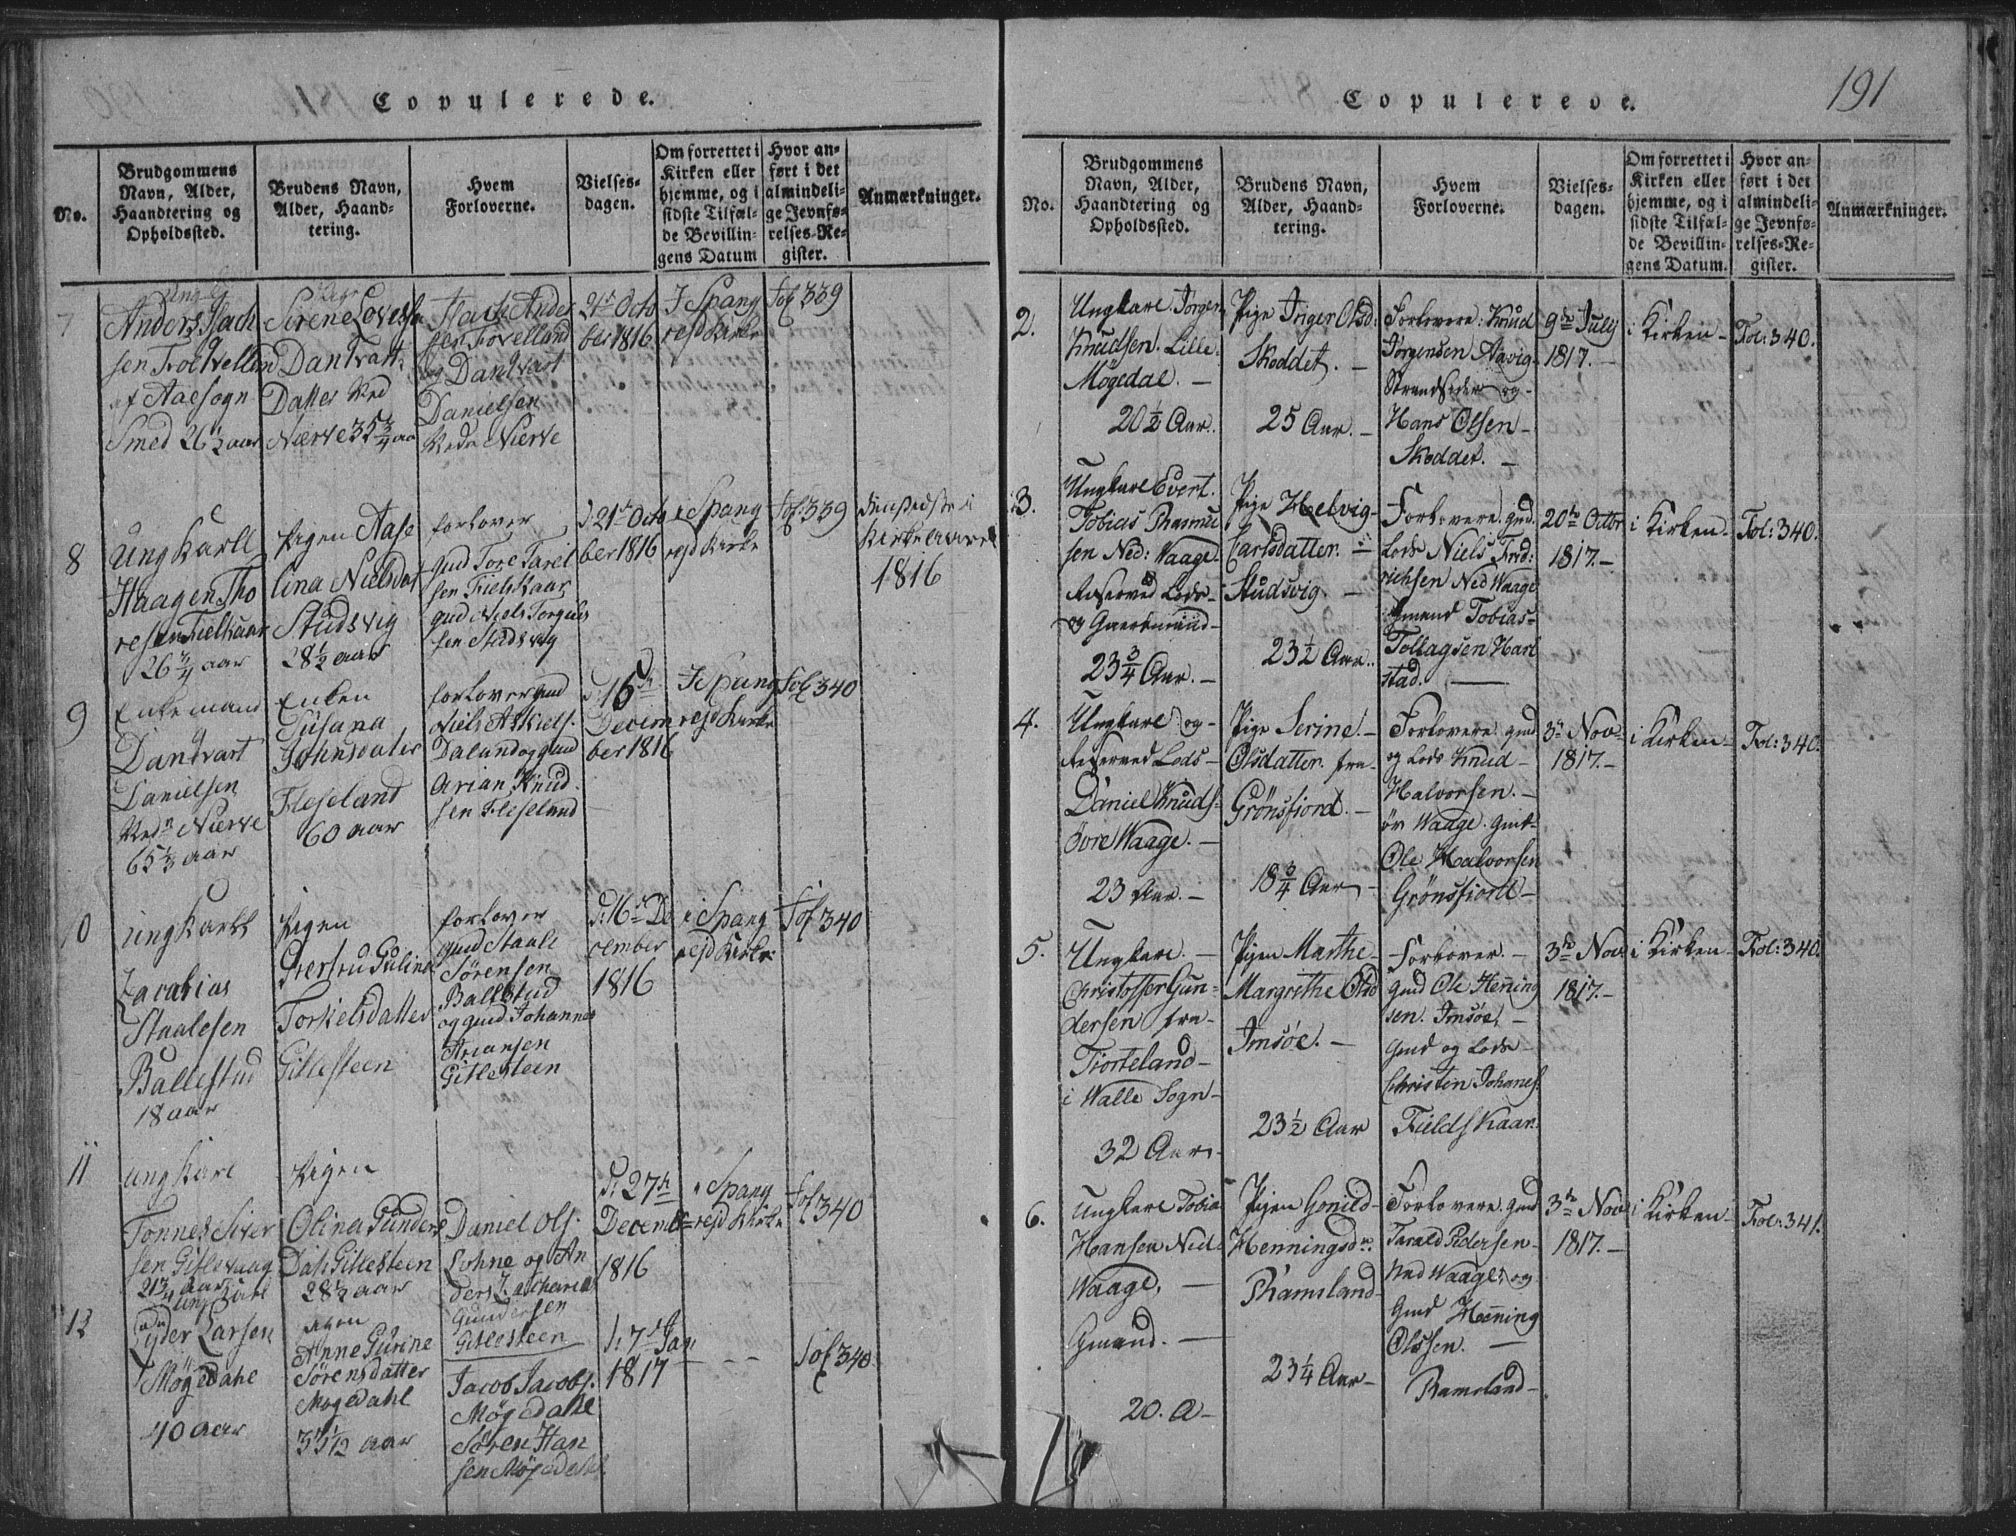 Copulerede.
No.
Brudgommens
Navn, Alder,
Haandtering og
Opholdssted.
Brudens Navn,
Alder, Haand-
tering.
Hvem
Forloverne.
Vielses-
dagen.
Om forrettet i
Kirken eller
hjemme, og i
sidste Tilfæl-
de Bevillin-
gens Datum
Hvor an-
ført i det
almindeli-
ge Jevnfø-
relses-Re-
gister.
Anmærkninger.
7
Anders Isach
sen
af Aaesogn
Smed 26 1/2 aar
Serene
Dantvatt
Datter Ned
Nærve 35 3/4 aa
Isach Ander
sen Fovelland
og Dantvart
Danielsen
Nedr Nierve
21de Octo
ber 1816
I Spang
rejd Kirke
Fol 339
8
Ung Karll
Haagen Tho
resen Fielkaar
26 3/4 aar
Pigen Aase
lina Nielsdat
Studsvig
28 1/2 aar
forlover
gmd Tore Tarel
sen Fielskaar
gmd Niels Torgiuls
sen Studsvig
d 21de Octo
ber 1816
i Spang
rejd Kirke
Fol. 339
1816
9
Enkemand
Dandvart
Danielsen
Nedr Nierve
65 1/2 aar
Enken
Susana
Johnsdater
Fleseland
60 aar
forlover gmd
Niels Askiels.
Daland og gmd
Arian Knud
sen Fleseland
d. 16de
Decem
ber 1816
I Spang
rejd Kirke
Fol 340
10
ung Karll
Zacarias
Staalesen
Ballestud
18 aar
Pigen
Giertru Gulina
Torkelsdatter
Gitlesteen
forlover
gmd Staale
Sörensen
Ballestud
og gmd Johannes
Ariansen
Gitlesteen
d. 16de De
cember
1816
i Spang
rejd Kirke
Fol 340
11
ung Karl
Tønnes Siver
sen Gitlevaag
21 3/4 aar
Pigen
Olina Gunders
Datr Gitlesteen
28 1/2 aar
Daniel Ols.
Lohne og An
ders Zacharias
Gundersen
Gitlesteen
d. 27de
Decemb
1816
i Spang
rejd Kirke
Fol 340
12
ung Karl
Lyder Larsen
Møgedahl
40 aar
Pigen
Anne Gurine
Sørensdatter
Møgedahl
33 1/2 aar
Jacob Jacobs.
Møgedahl
Søren Han
sen Møgedahl
d. 7de Jan
1817
Fol 340
Copulerede.
191
No.
Brudgommens
Navn, Alder,
Haandtering og
Opholdssted.
Brudens Navn,
Alder, Haand-
tering.
Hvem
Forloverne.
Vielses-
dagen.
Om forrettet i
Kirken eller
hjemme, og i
sidste Tilfæl-
de Bevillin-
gens Datum.
Hvor an-
ført i det
almindeli-
ge Jevnfø-
relses-Re-
gister.
Anmærkninger.
2.
Ungkarl Jörgen
Knudsen. Lille
Mögedal. —
20 1/2 Aar.
Pige Inger Olsd:
Skoddet. —
25 Aar. —
Forlovere: Knud
Jörgensen Aavig
Strandsidder og
Hans Olsen
Skoddet. —
9de July
1817. —
i Kirken —
Fol: 340.
3.
Ungkarl Evert
Tobias Rasmu
sen Ned: Waage.
Reserved Lods
og Gaardmand
23 3/4 Aar. —
Pige Helvig
Carlsdatter. —
Studsvig. —
23 1/2 Aar.
Forlovere gmd.
Lods Niels Fred:
richsen Ned Waage
Gmand Tobias
Tollagsen Har
stad. —
20de Octbr
1817. —
i Kirken —
Fol: 340.
4.
Ungkarl og
Reserved Lods
Daniel Knuds.
Övre Waage. —
23 Aar. —
Pige Serine
Olsdatter fra
Grönsfiord. —
18 3/4 Aar —
Forlovere gmd
og Lods Knud
Halvorsen. —
öv Waage. Gmd
Ole Halvorsen
Grönsfiord —
3de Nov
1817. —
i Kirken —
Fol: 340.
5.
Ungkarl. —
Christoffer Gun-
dersen fra
Tiorteland
i Walle Sogn
32 Aar.
Pigen Marthe
Margrethe Olsd
Imsöe. —
23 1/2 Aar
Forlover. —
Gmd Ole Hening
sen. Imsöe. —
Gmd og Lods
Christen Johanes.
Fieldskaar
3de Nov
1817. —
i Kirken —
Fol: 340.
6.
Ungkarl Tobia
Hansen Ned:
Waage. —
Gmand. —
20. A —
Pigen Gonild
Henningsdr.
Ramsland
23 1/4 Aar —
Forlovere Gmd
Tarald Pedersen
Ned Waage. og
Gmd Hening
Olssen. —
Ramsland —
3de Nov
1817. —
i Kirken —
Fol: 341.